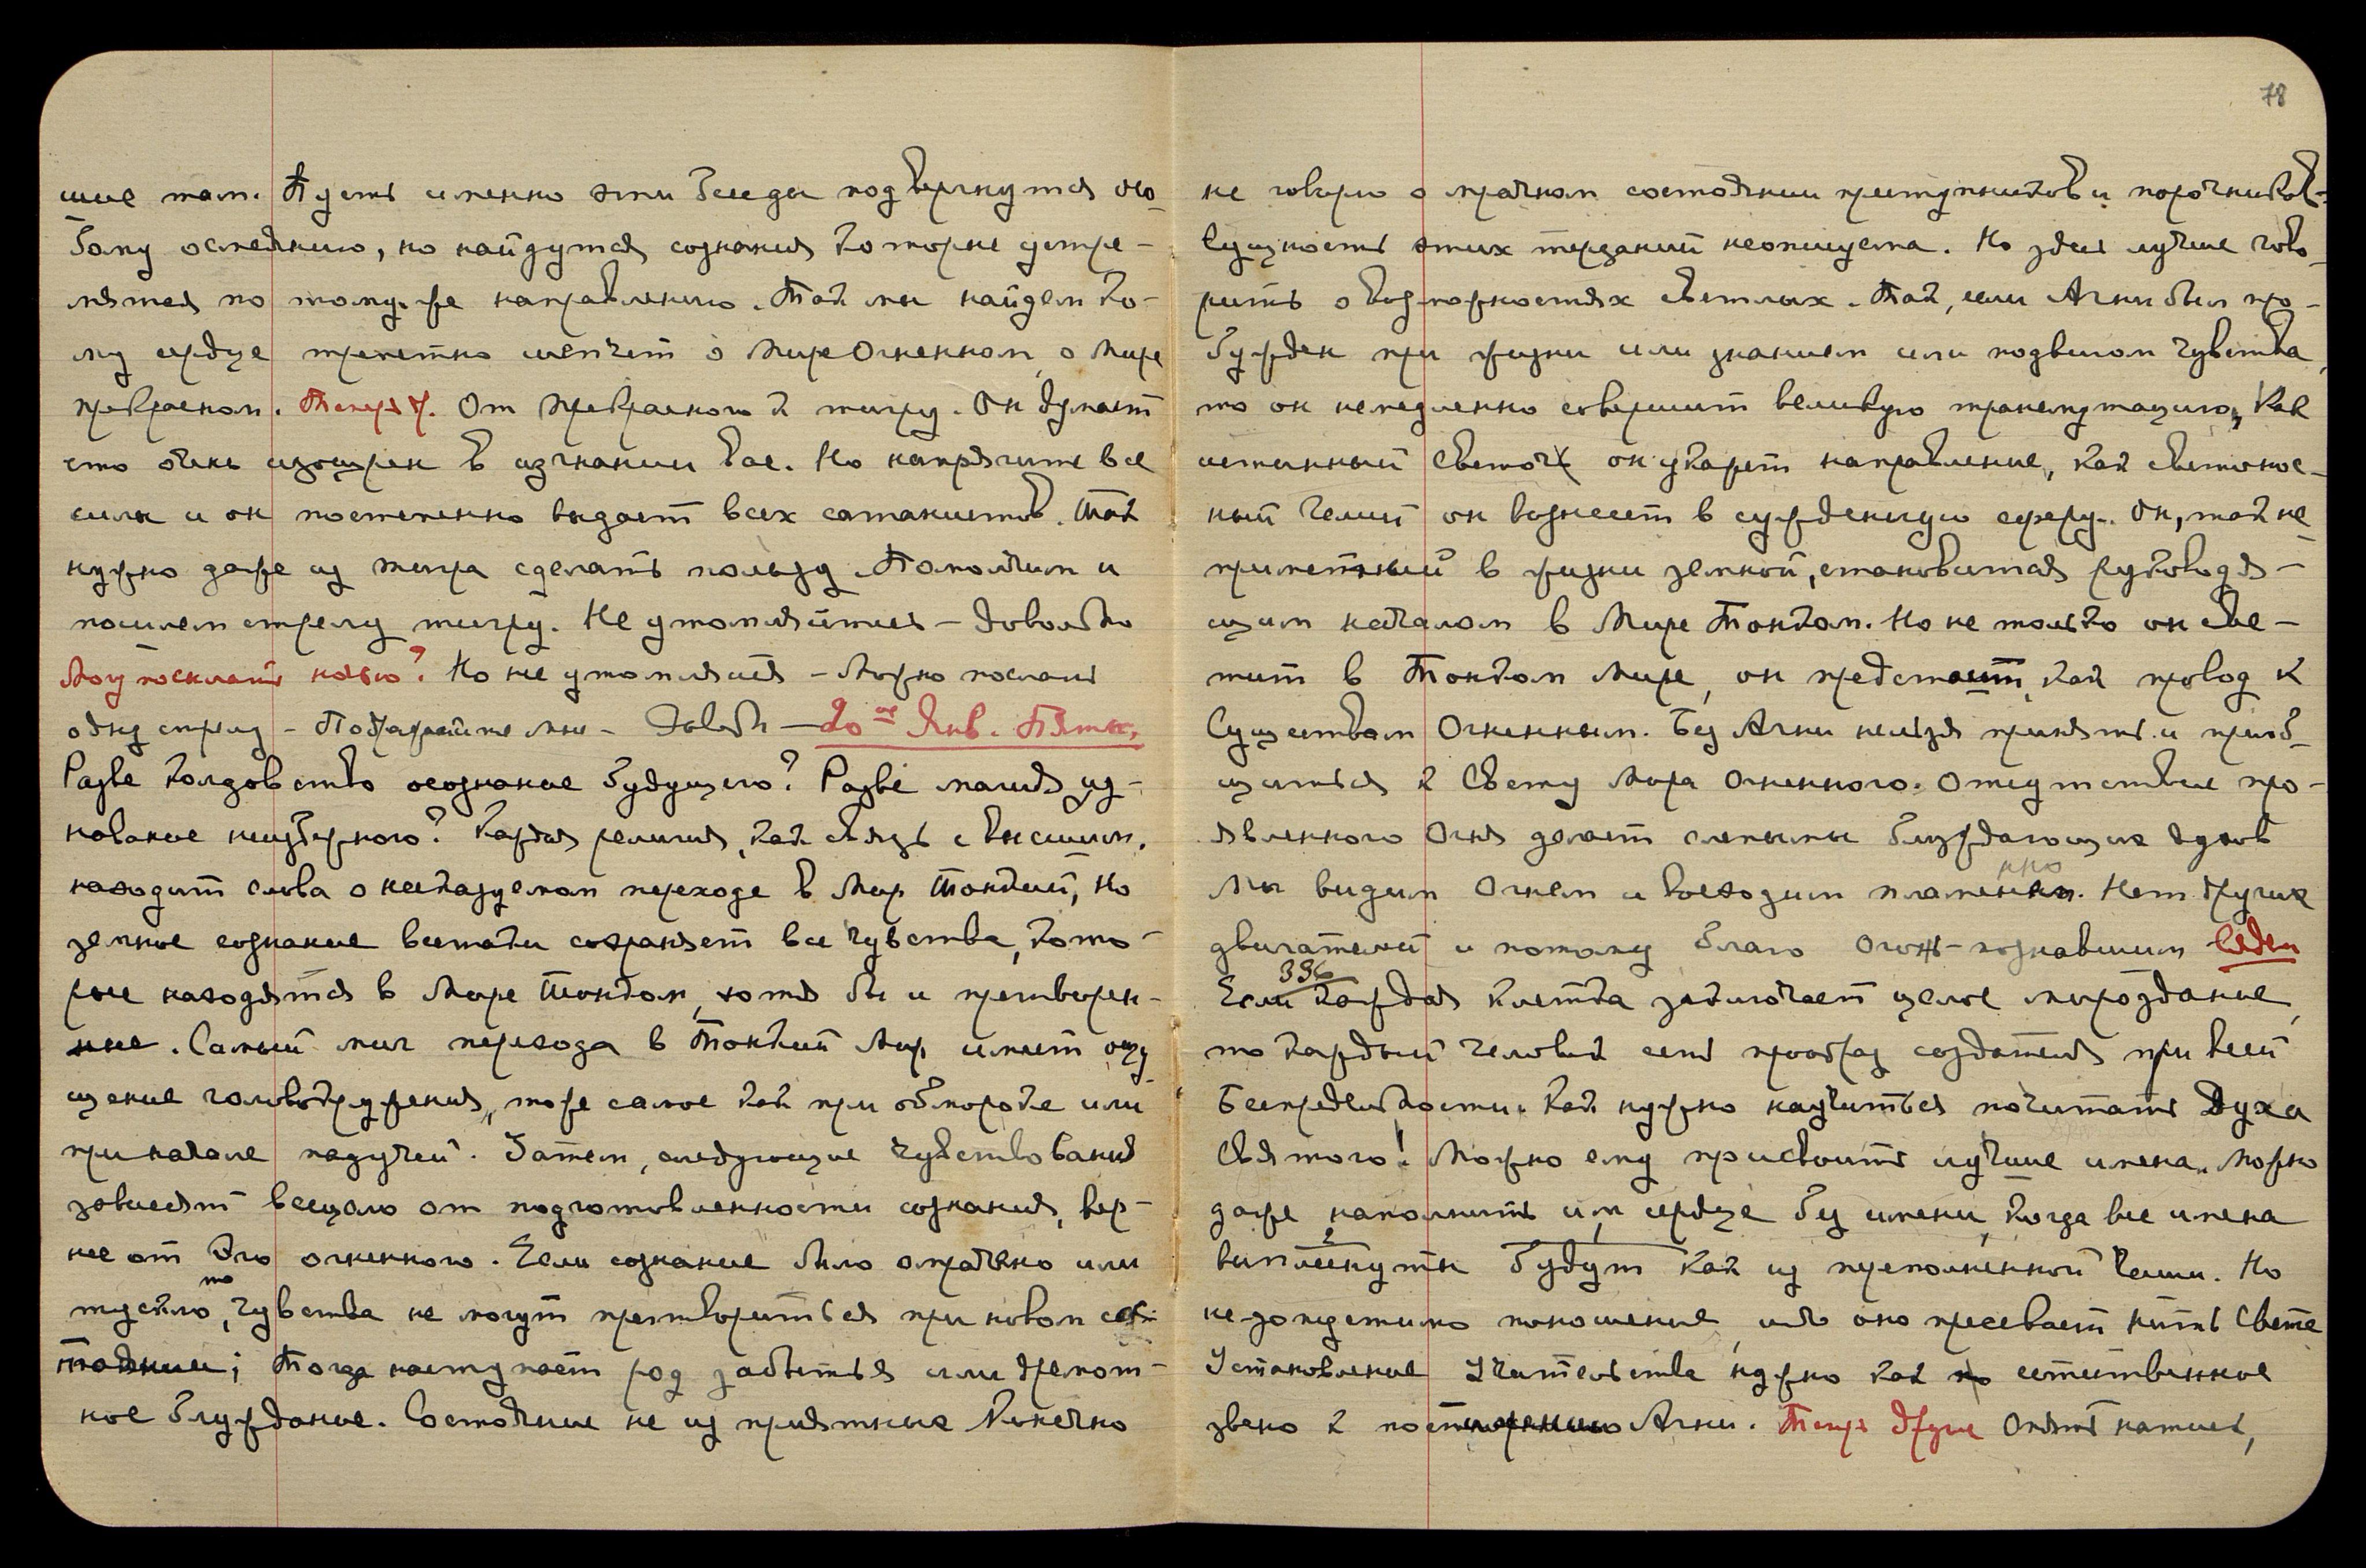 шие там. Пусть именно эти беседы подвергнутся осо-
бому осмеянию, но найдутся сознания которые устре-
мятся по тому-же направлению. Так мы найдем ко-
му сердце трепетно шепчет о Мире Огненном, о Мире
прекрасном. Теперь От прекрасного к тигру. Он думает
что очень изощрен в изгнании вас. Но напрягите все
силы и он постепенно выдает всех сатанистов. Так
нужно даже из тигра сделать пользу. Помолчим и
пошлем стрелу тигру. Не утомляйтесь – Довольно
Могу посылать ночью? Но не утомляясь – Можно послать
одну стрелу – Подражайте мне – Довольно – 20ое Янв. Пятн.
Разве колдовство осознание будущего? Разве магия из-
нование неизбежного? Каждая религия, как связь с высшим,
находит слова о несказуемом переходе в Мир Тонкий, но
земное сознание всетаки сохраняет все чувства, кото-
рые находятся в Мире Тонком, хотя бы и претворен-
ные. Самый миг перехода в Тонкий Мир имеет ощу
щение головокружения, тоже самое как при обмороке или
при начале падучей. Затем, следующие чувствования
зависят всецело от подготовленности сознания, вер-
нее от Эго огненного. Если сознание было омрачено или
тускло, то чувства не могут претвориться при новом сос-
тоянии; Тогда наступает род забытья или дремот-
ное блуждание. Состояние не из приятных Конечно
78
не говорю о мрачном состоянии преступников и порочников-
Сущность этих терзаний неописуема. Но здесь лучше гово-
рить о возможностях светлых. Так, если Агни был про-
бужден при жизни или знанием или подвигом чувства,
то он немедленно совершит великую трансмутацию, Как
истинный светоч он укажет направление, как светонос-
ный гелий он вознесет в сужденную сферу. Он, так не
приметный в жизни земной, становится руководя-
щим началом в Мире Тонком. Но не только он све-
тит в Тонком Мире, он предстоит, как провод к
Существам Огненным. Без Агни нельзя принять и приоб-
щиться к Свету Мира Огненного. Отсутствие про-
явленного Огня делает слепыми блуждающие духов
Мы видим Огнем и восходим пламенно. Нет других
двигателей и потому благо огонь-познавшим
336
Если каждая клетка заключает целое мироздание,
то каждый человек есть прообраз создателя при всей
Беспредельности. Как нужно научиться почитать Духа
Святого! Можно ему присвоить лучшие имена. Можно
даже наполнить им сердце без имени, когда все имена
выплеснуты будут как из преполненной чаши. Но
не-допустимо поношение, ибо оно пресекает нить Света
Установление Учительства нужно как естественное
звено к постижению Агни. Теперь другие Опять натиск,